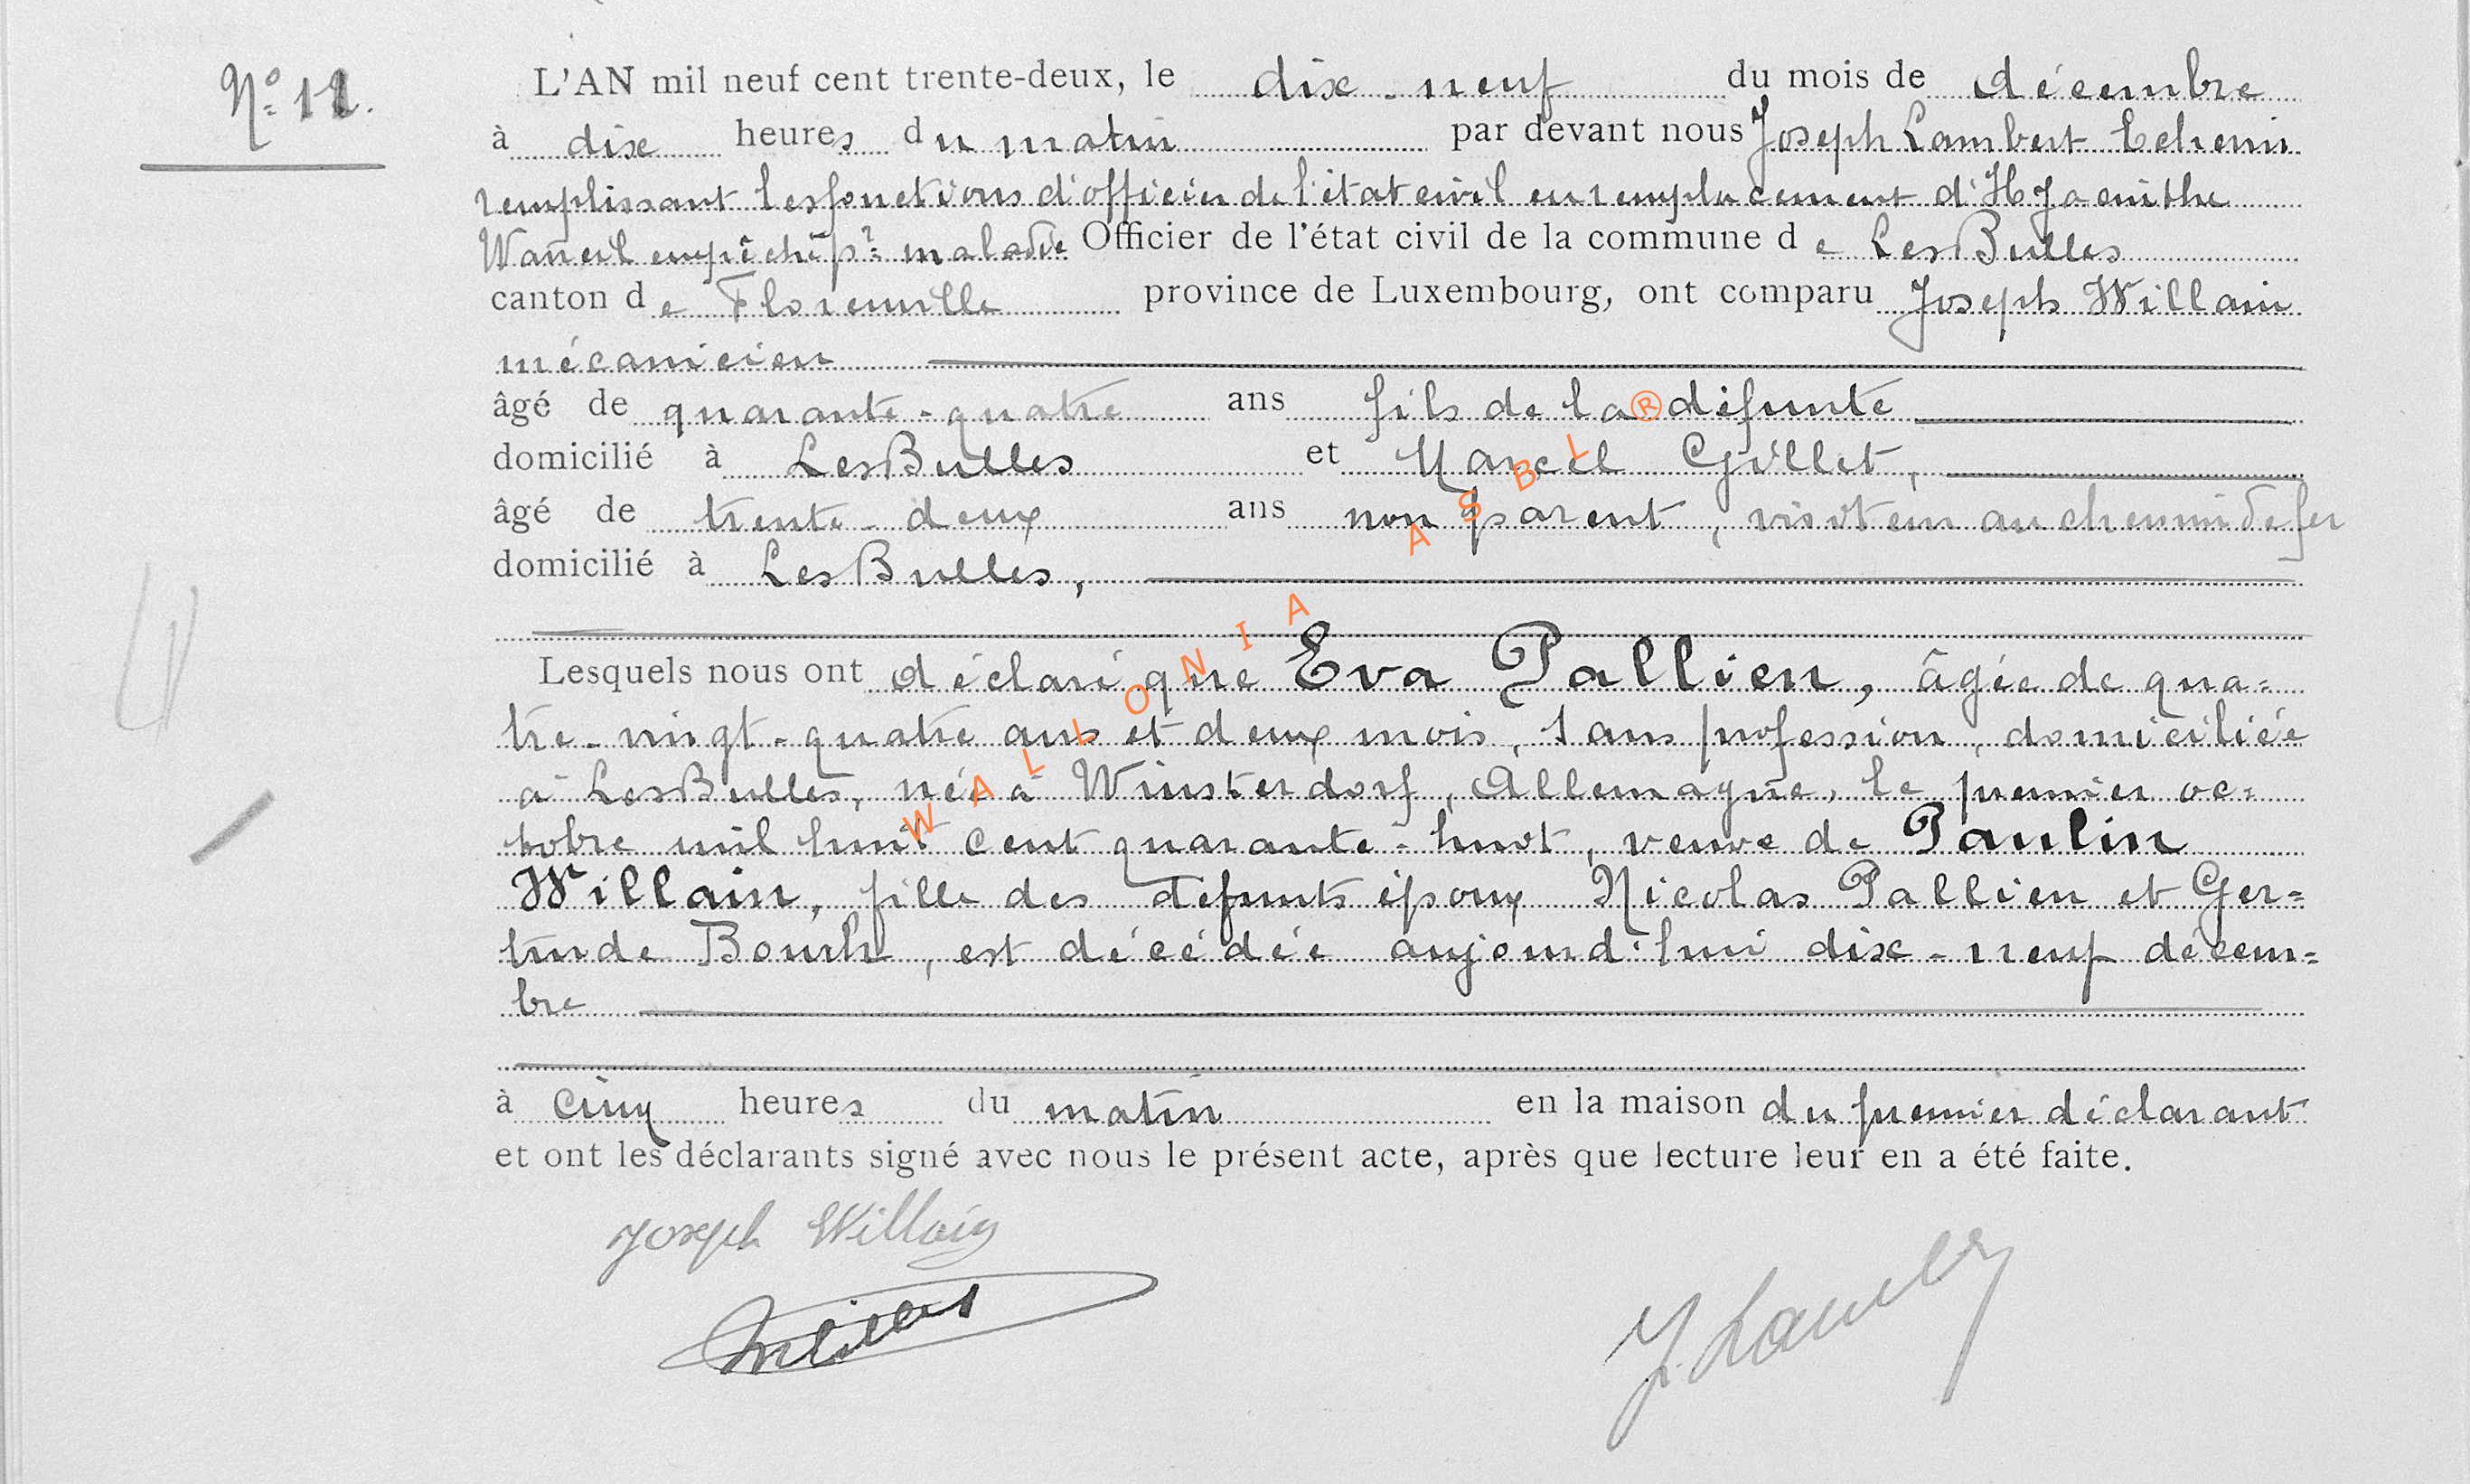 N° 12.
L'AN mil neuf cent trente-deux, le dix-neuf du mois de décembre
à dix heures du matin par devant nous Joseph Lambert Echevin
remplissant les fonctions d'officier de l'état civil en remplacement d'Hyacinthe
empêché pr maladie Officier de l'état civil de la commune de Les Bulles
canton de Florenville province de Luxembourg, ont comparu Joseph Willain
mécanicien
âgé de quarante-quatre ans fils de la défunte
domicilié à Les Bulles et Marcel Gillet,
âgé de trente-deux ans non parent, visiteur au chemin de fer
domicilié à Les Bulles,
Lesquels nous ont déclaré que Eva Pallien, âgée de qua=
tre-vingt-quatre ans et deux mois, sans profession, domiciliée
à Les Bulles, née à Winsterdorf, Allemagne, le premier oc=
tobre mil huit cent quarante-huit, veuve de Paulin
Willain, fille des défunts époux Nicolas Pallien et Ger=
trude Bourh, est décédée aujourd'hui dix-neuf décem=
bre
à cinq heures du matin en la maison du premier déclarant
et ont les déclarants signé avec nous le présent acte, après que lecture leur en a été faite.
Joseph Willain
J. Lambert
WALLONIA ASBL ®